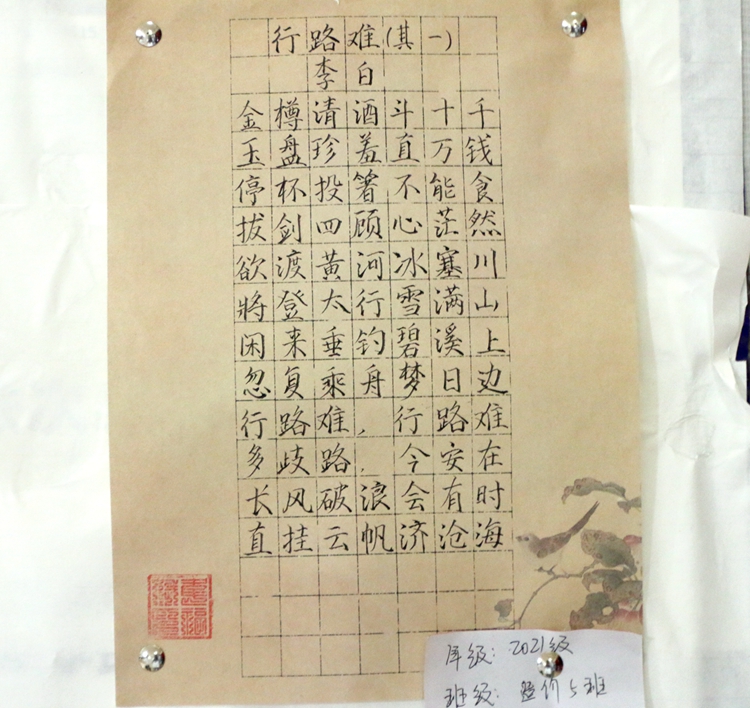 行路难(其一)
李白
金樽清酒斗十千
玉盘珍羞直万钱
停杯投箸不能食
拔剑四顾心茫然
欲渡黄河冰塞川
将登太行雪满山
闲来垂钓碧溪上
忽复乘舟梦日边
行路难,行路难
多歧路,今安在
长风破浪会有时
直挂云帆济沧海
年级:2021级
班级:造价5班